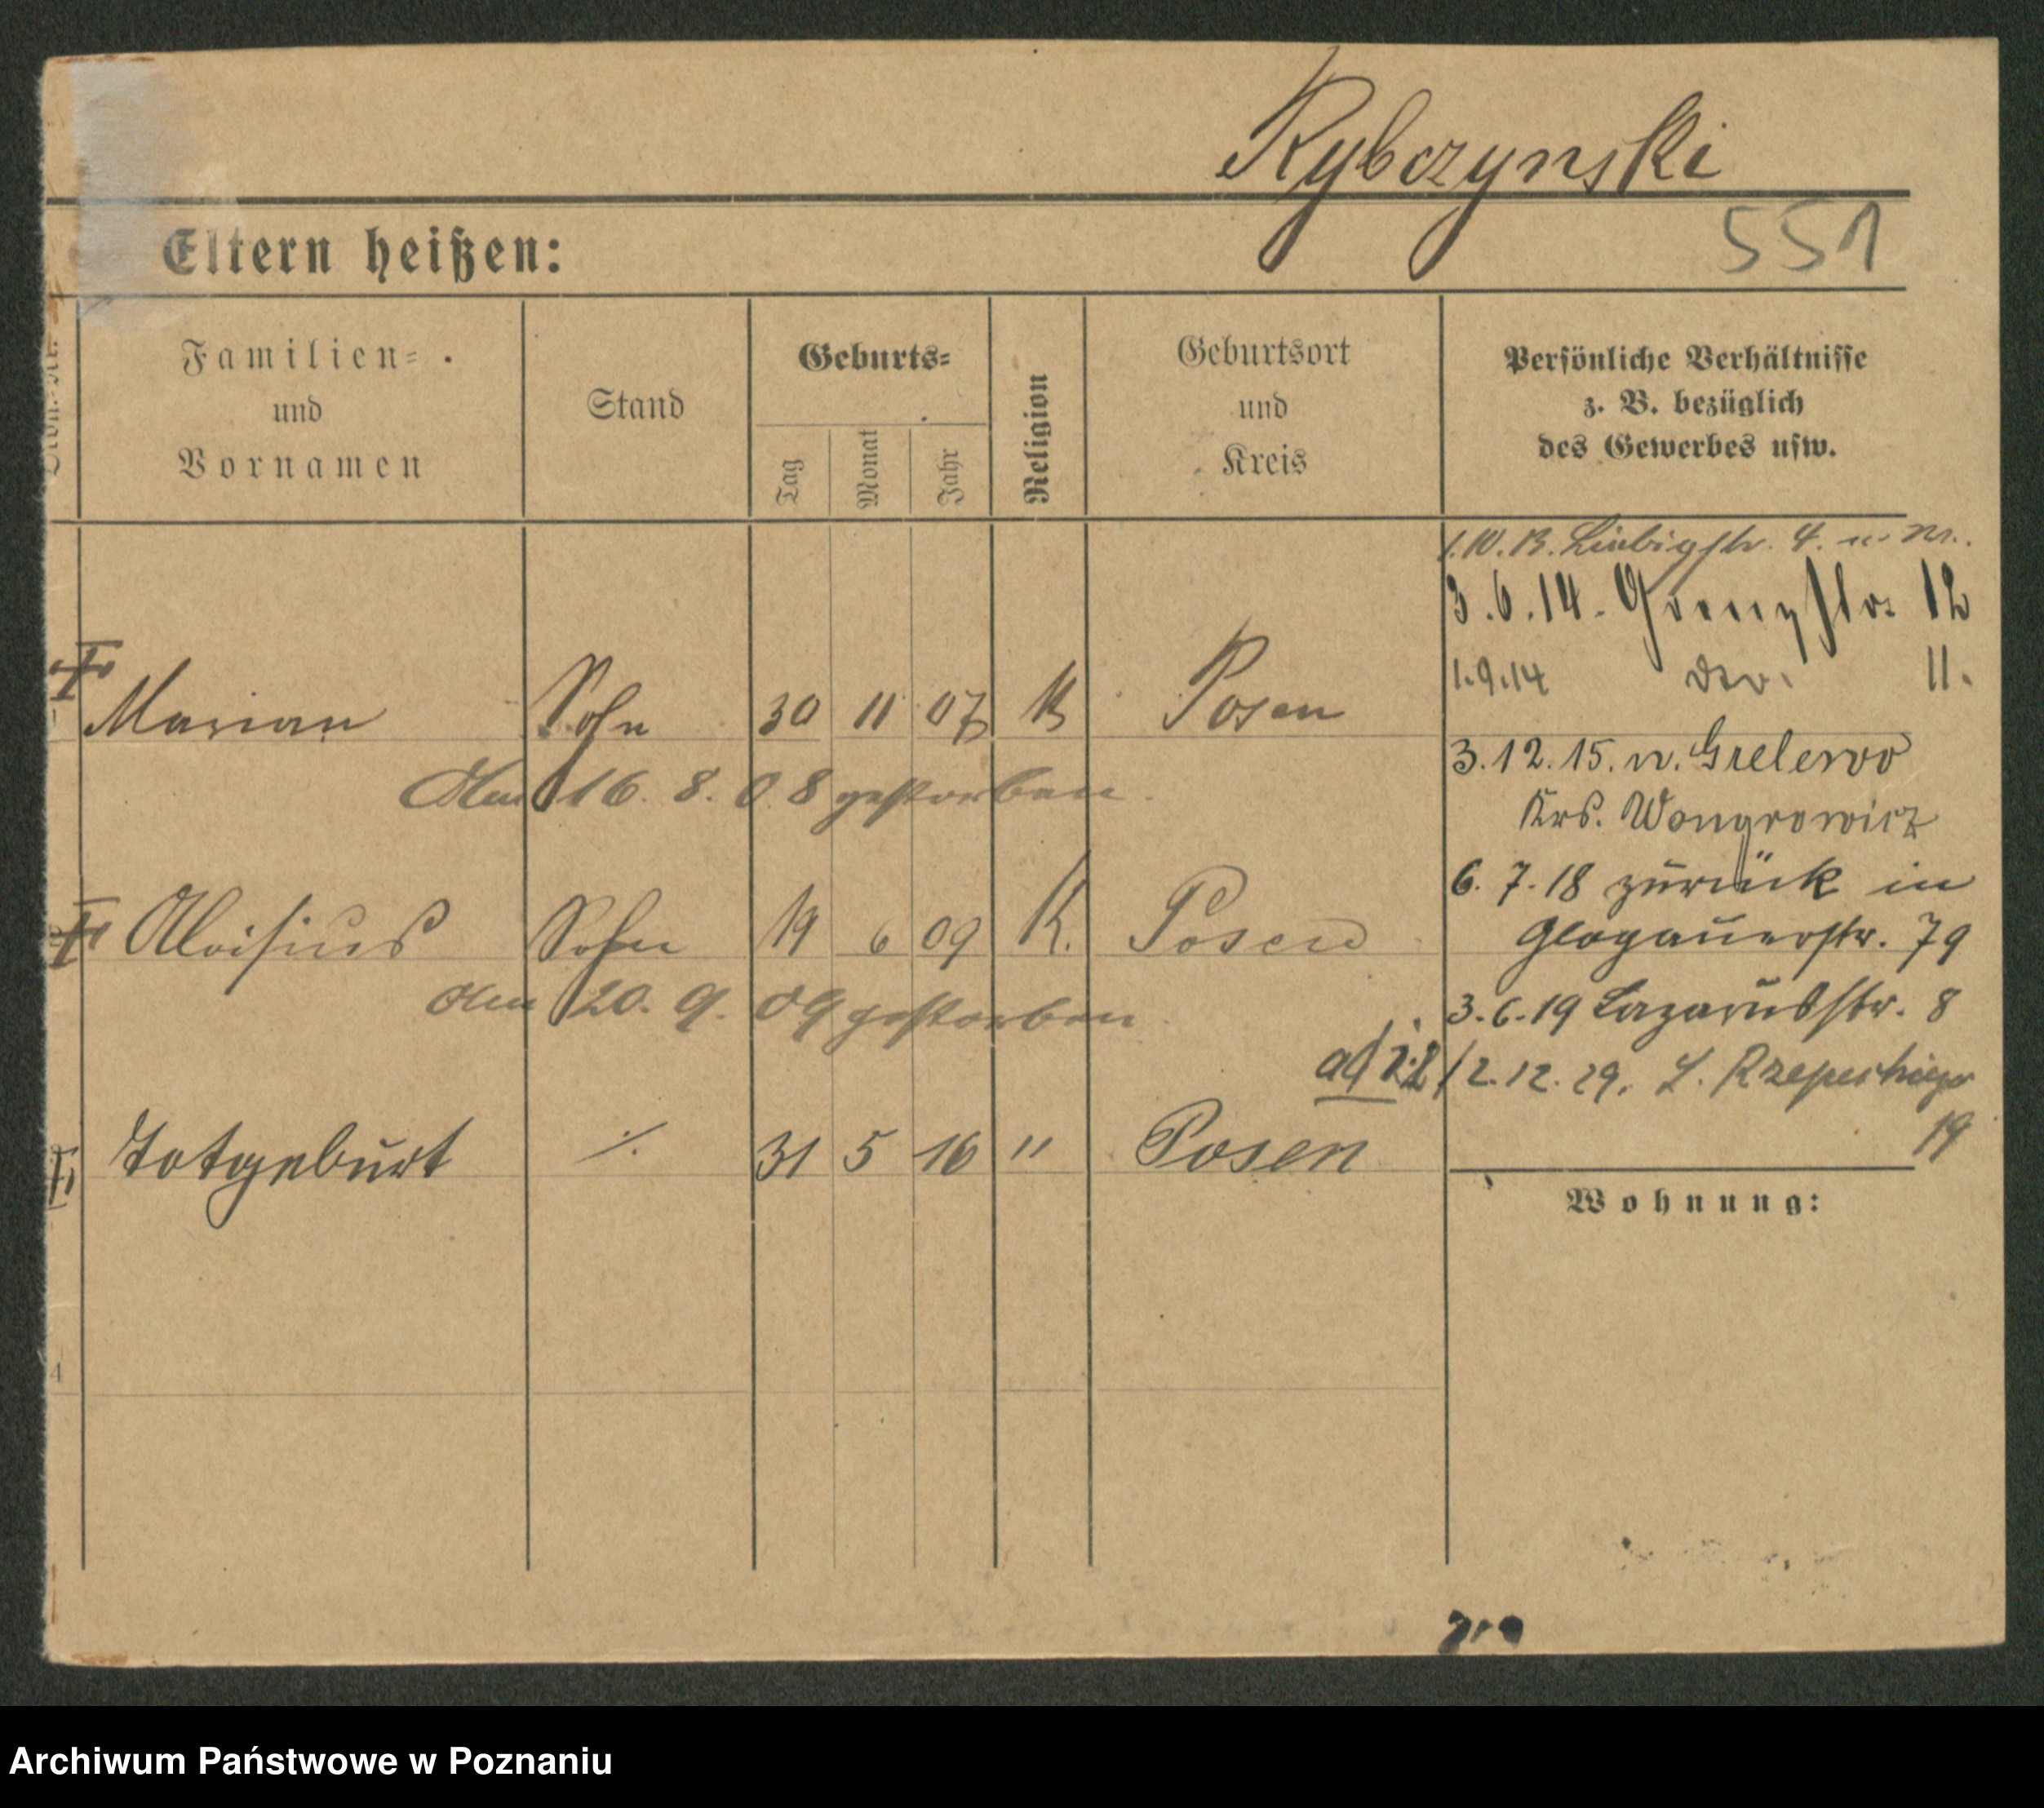 Rybczynski
551
Eltern heißen:
Familien=
und
Vornamen
Stand
Geburts=
Tag
Monat
Jahr
Religion
Geburtsort
und
Kreis
Persönliche Verhältnisse
z. B. bezüglich
des Gewerbes usw.
1.10.13. Liebigstr. 4.
3.6.14. Grenzstr. 12
1.9.14 11.
Marian Sohn 30 11 07 K Posen
3.12.15. n. Grelewo
Am 16. 8. 08 gestorben.
Krs. Wongrowicz
6. 7. 18 zurück in
Aloisius Sohn 19 6 09 K. Posen
Glogauerstr. 79
Am 20. 9. 09 gestorben
3.6.19 Lazarusstr. 8
ad 1.2/ 2.12.29.
19
Totgeburt ./. 31 5 16 " Posen
Wohnung:
4
Archiwum Państwowe w Poznaniu